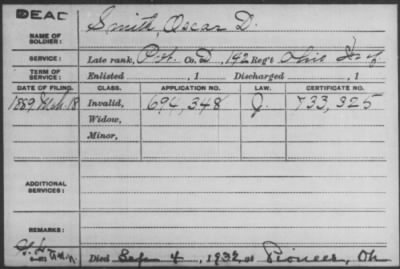 DEAD
NAME OF SOLDIER: Smith, Oscar D.
SERVICE: Late rank, Pvt. Co. D, 192 Reg't Ohio Inf
TERM OF SERVICE: Enlisted , 1 Discharged , 1
DATE OF FILING. CLASS. APPLICATION NO. LAW. CERTIFICATE NO.
1889, Mch. 18 Invalid, 694,348 J. 733,325
Widow,
Minor,
ADDITIONAL SERVICES:
REMARKS:
Died Sep 4, 1932, at Pioneer, Oh